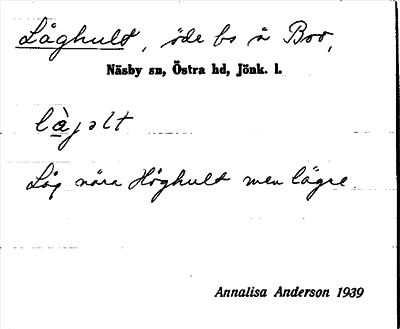 Låghult, öde bs å Boo,
Näsby sn, Östra hd, Jönk. l.
là̱jəlt
Låg nära Höghult men lägre.
Annalisa Anderson 1939